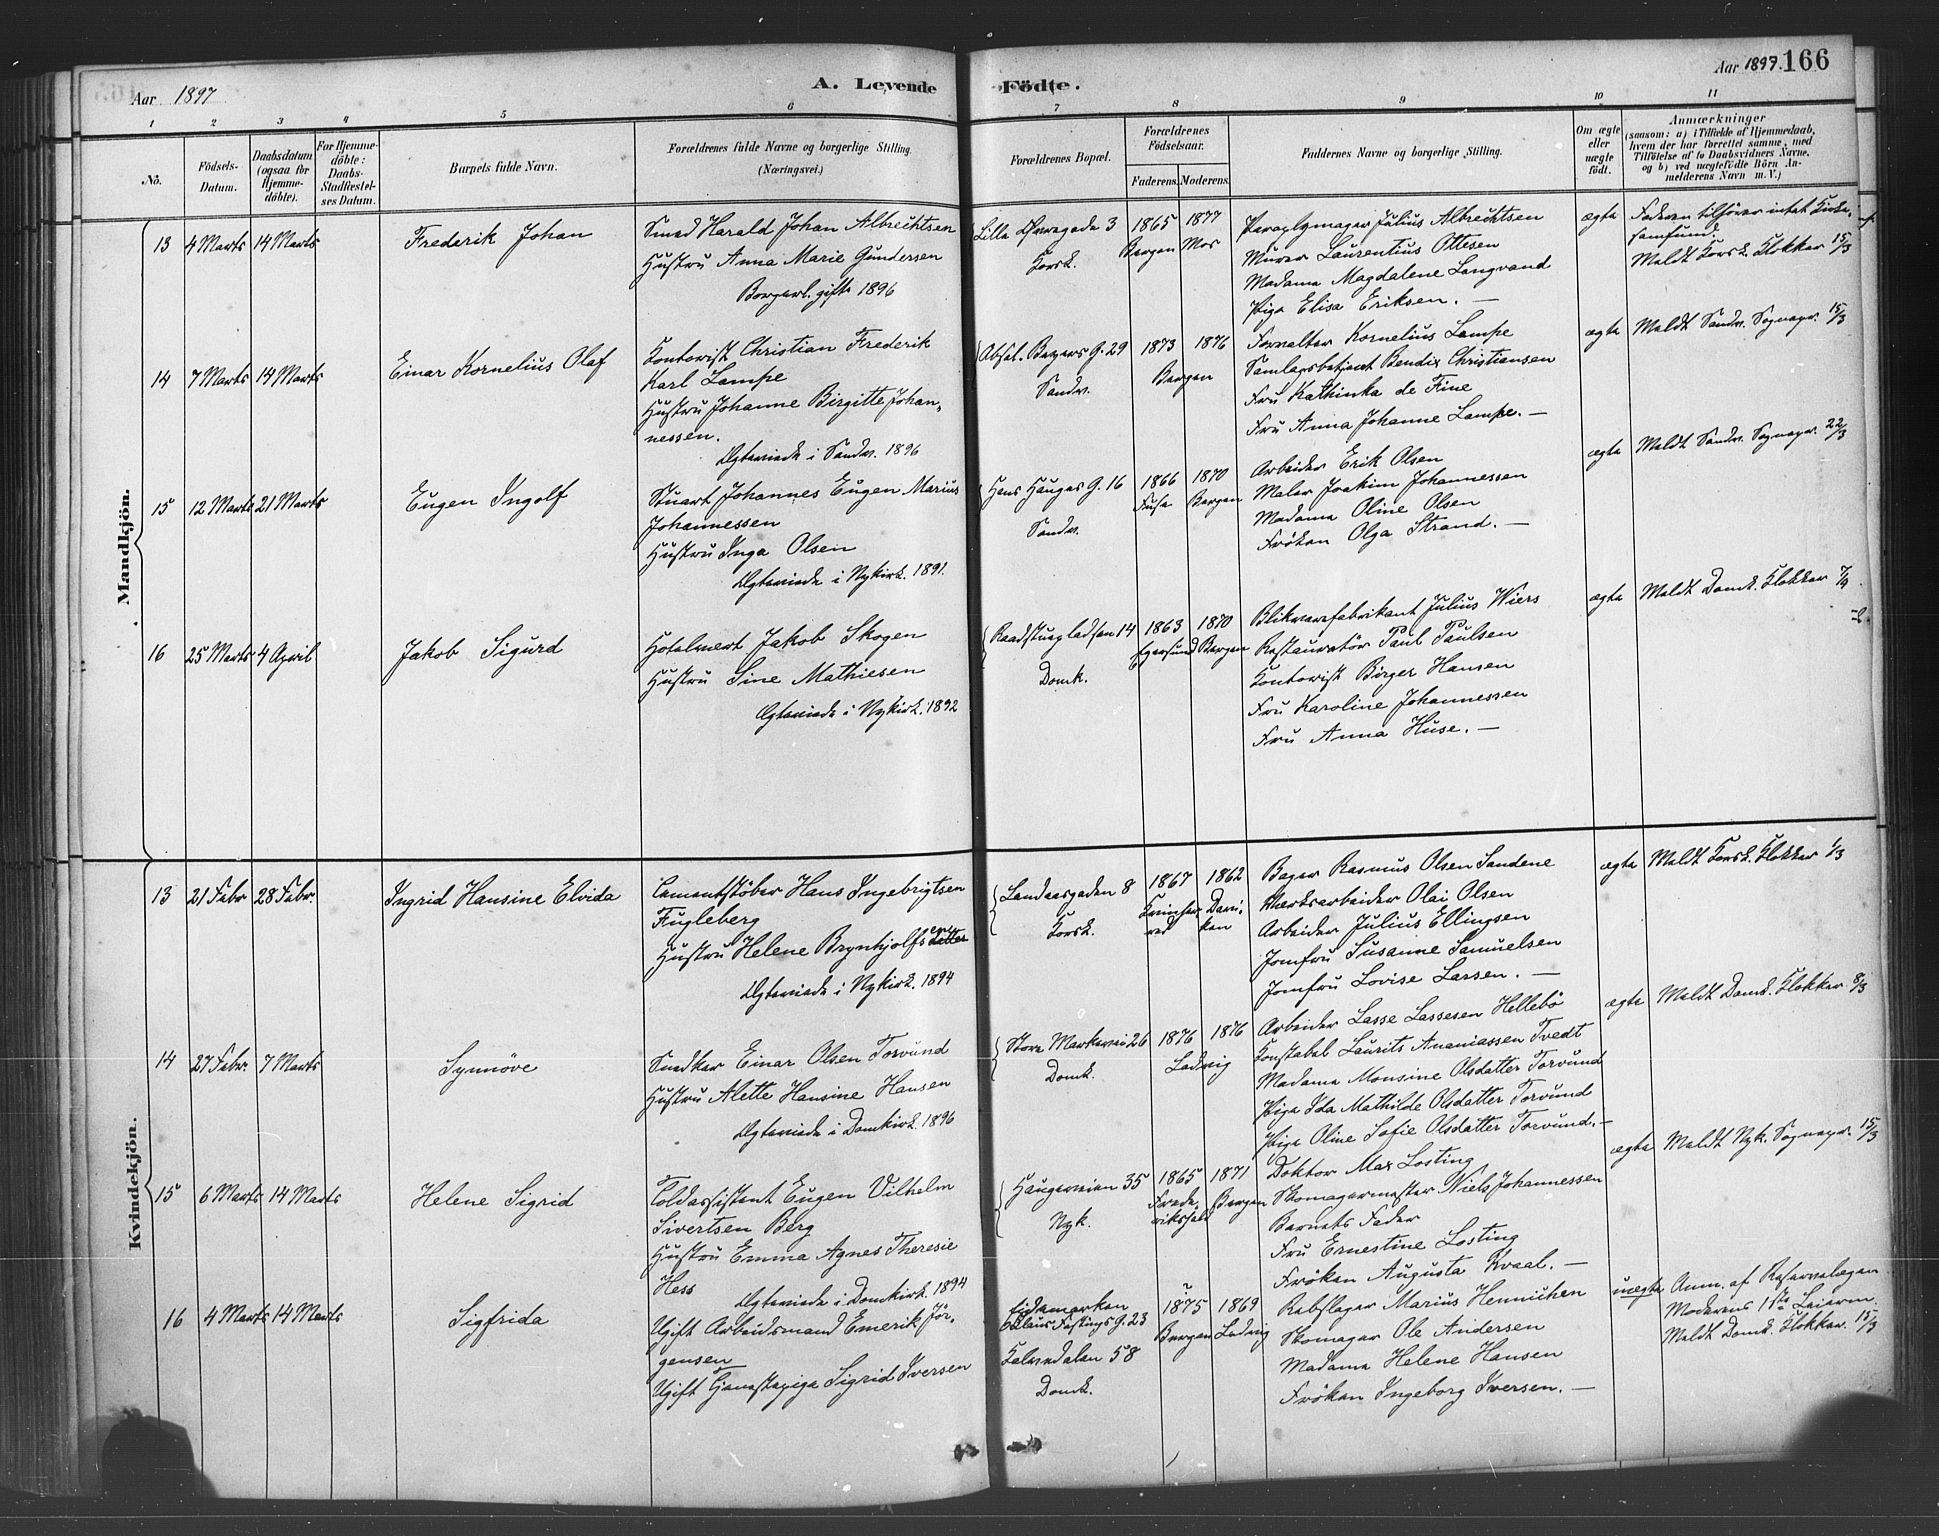 Aar 1897
A. Levende Födte.
Aar 1897. 166
1 2 3 4 5 6 7 8 9 10 11
No.
Födsels-Datum.
Daabsdatum (ogsaa for Hjemme-döbte).
For Hjemme-döbte: Daabs-Stadfæstel-ses Datum.
Barnets fulde Navn.
Forældrenes fulde Navne og borgerlige Stilling. (Næringsvei.)
Forældrenes Bopæl.
Forældrenes Födselsaar.
Faderens. Moderens.
Faddernes Navne og borgerlige Stilling.
Om ægte eller uægte født.
Anmærkninger
(saasom: a) i Tilfælde af Hjemmedaab,
hvem der har forrettet samme, med
Tilföielse af to Daabsvidners Navne,
og b) ved uægtefödte Börn An-
melderens Navn m. V.)
Mandkjön.
13 4 Marts 14 Marts
Frederik Johan
Smed Harald Johan Albrechtsen
Hustru Anna Marie Gundersen
Borgerl. gifte 1896
Lille Øvregade 3
Korsk.
1865 Bergen
1877 Mos
Paraplymager Julius Albrechtsen
Murer Laurentius Ottesen
Madame Magdalene Langvand
Pige Elisa Eriksen. —
ægte
Faderen tilhører intet Kirke-
samfund.
Meldt Korsk. Klokker 15/3
14 7 Marts 14 Marts
Einar Kornelius Olaf
Kontorist Christian Frederik
Karl Lampe
Hustru Johanne Birgitte Johan-
nessen.
Ægteviede i Sandv. 1896
Absal. Beyers G. 29
Sandv.
1873 1876
Bergen
Forvalter Kornelius Lampe
Samlagsbetjent Bendix Christiansen
Fru Kathinka de Fine
Fru Anna Johanne Lampe. —
ægte
Meldt Sandv. Sognepr. 15/3
15 12 Marts 21 Marts
Eugen Ingolf
Stuart Johannes Eugen Marius
Johannessen
Hustru Inga Olsen
Ægteviede i Nykirk. 1891.
Hans Hauges G. 16
Sandv.
1866 Fusa
1870 Bergen
Arbeider Erik Olsen
Maler Joakim Johannessen
Madame Oline Olsen
Frøken Olga Strand. —
ægte
Meldt Sandv. Sognepr. 22/3
16 25 Marts 4 April
Jakob Sigurd
Hotelvert Jakob Skogen
Hustru Sine Mathiesen
Ægteviede i Nykirk. 1892
Raadstuepladsen 14
Domk.
1863 Egersund
1870 Bergen
Blikvarefabrikant Julius Wiers
Restauratør Paul Paulsen
Kontorist Birger Hansen
Fru Karoline Johannessen
Fru Anna Huse. —
ægte
Meldt Domk. Klokker 7/4
Kvindekjön.
13 21 Febr 28 Febr.
Ingrid Hansine Elvida
Cementstøber Hans Ingebrigtsen
Fugleberg
Hustru Helene Brynhjolfsdatter
Ægteviede i Nykirk. 1894
Landaasgaden 8
Korsk.
1867 Kvinhe-red
1862 Davi-ken
Bager Rasmus Olsen Sandene
Værksarbeider Olai Olsen
Arbeider Julius Ellingsen
Jomfru Susanne Samuelsen
Jomfru Lovise Larsen. —
ægte
Meldt Korsk. Klokker 1/3
14 27 Febr. 7 Marts
Synnöve
Snedker Einar Olsen Torvund
Hustru Alette Hansine Hansen
Ægteviede i Domkirk. 1896
Store Markevei 26
Domk.
1876 1876
Ladvig
Arbeider Lasse Lassesen Hellebø
Konstabel Laurits Ananiassen Tvedt
Madame Monsine Olsdatter Torvund
Pige Ida Mathilde Olsdatter Torvund
Pige Oline Sofie Olsdatter Torvund. —
ægte
Meldt Domk. Klokker 8/3
15 6 Marts 14 Marts
Helene Sigrid
Toldassistent Eugen Vilhelm
Sivertsen Berg
Hustru Emma Agnes Theresie
Hess
Ægteviede i Domkirk. 1894
Haugeveien 35
Nyk.
1865 Frede-rikshald
1871 Bergen
Doktor Max Losting
Skomagermester Niels Johannessen
Barnets Fader
Fru Ernestine Losting
Frøken Augusta Kvaal. —
ægte
Meldt Nyk. Sognepr. 15/3
16 4 Marts 14 Marts
Sigfrida
Ugift Arbeidsmand Emerik Jør-
gensen
Ugift Tjenestepige Sigrid Iversen
Claus Fastings G. 23
Kalvedalen 58
Domk.
1875 Bergen
1869 Ladvig
Rebslager Marius Hennichen
Skomager Ole Andersen
Madame Helene Hansen
Frøken Ingeborg Iversen. —
uægte
Anm. af Reservelægen
Moderens 1ste Leierm.
Meldt Domk. Klokker. 15/3